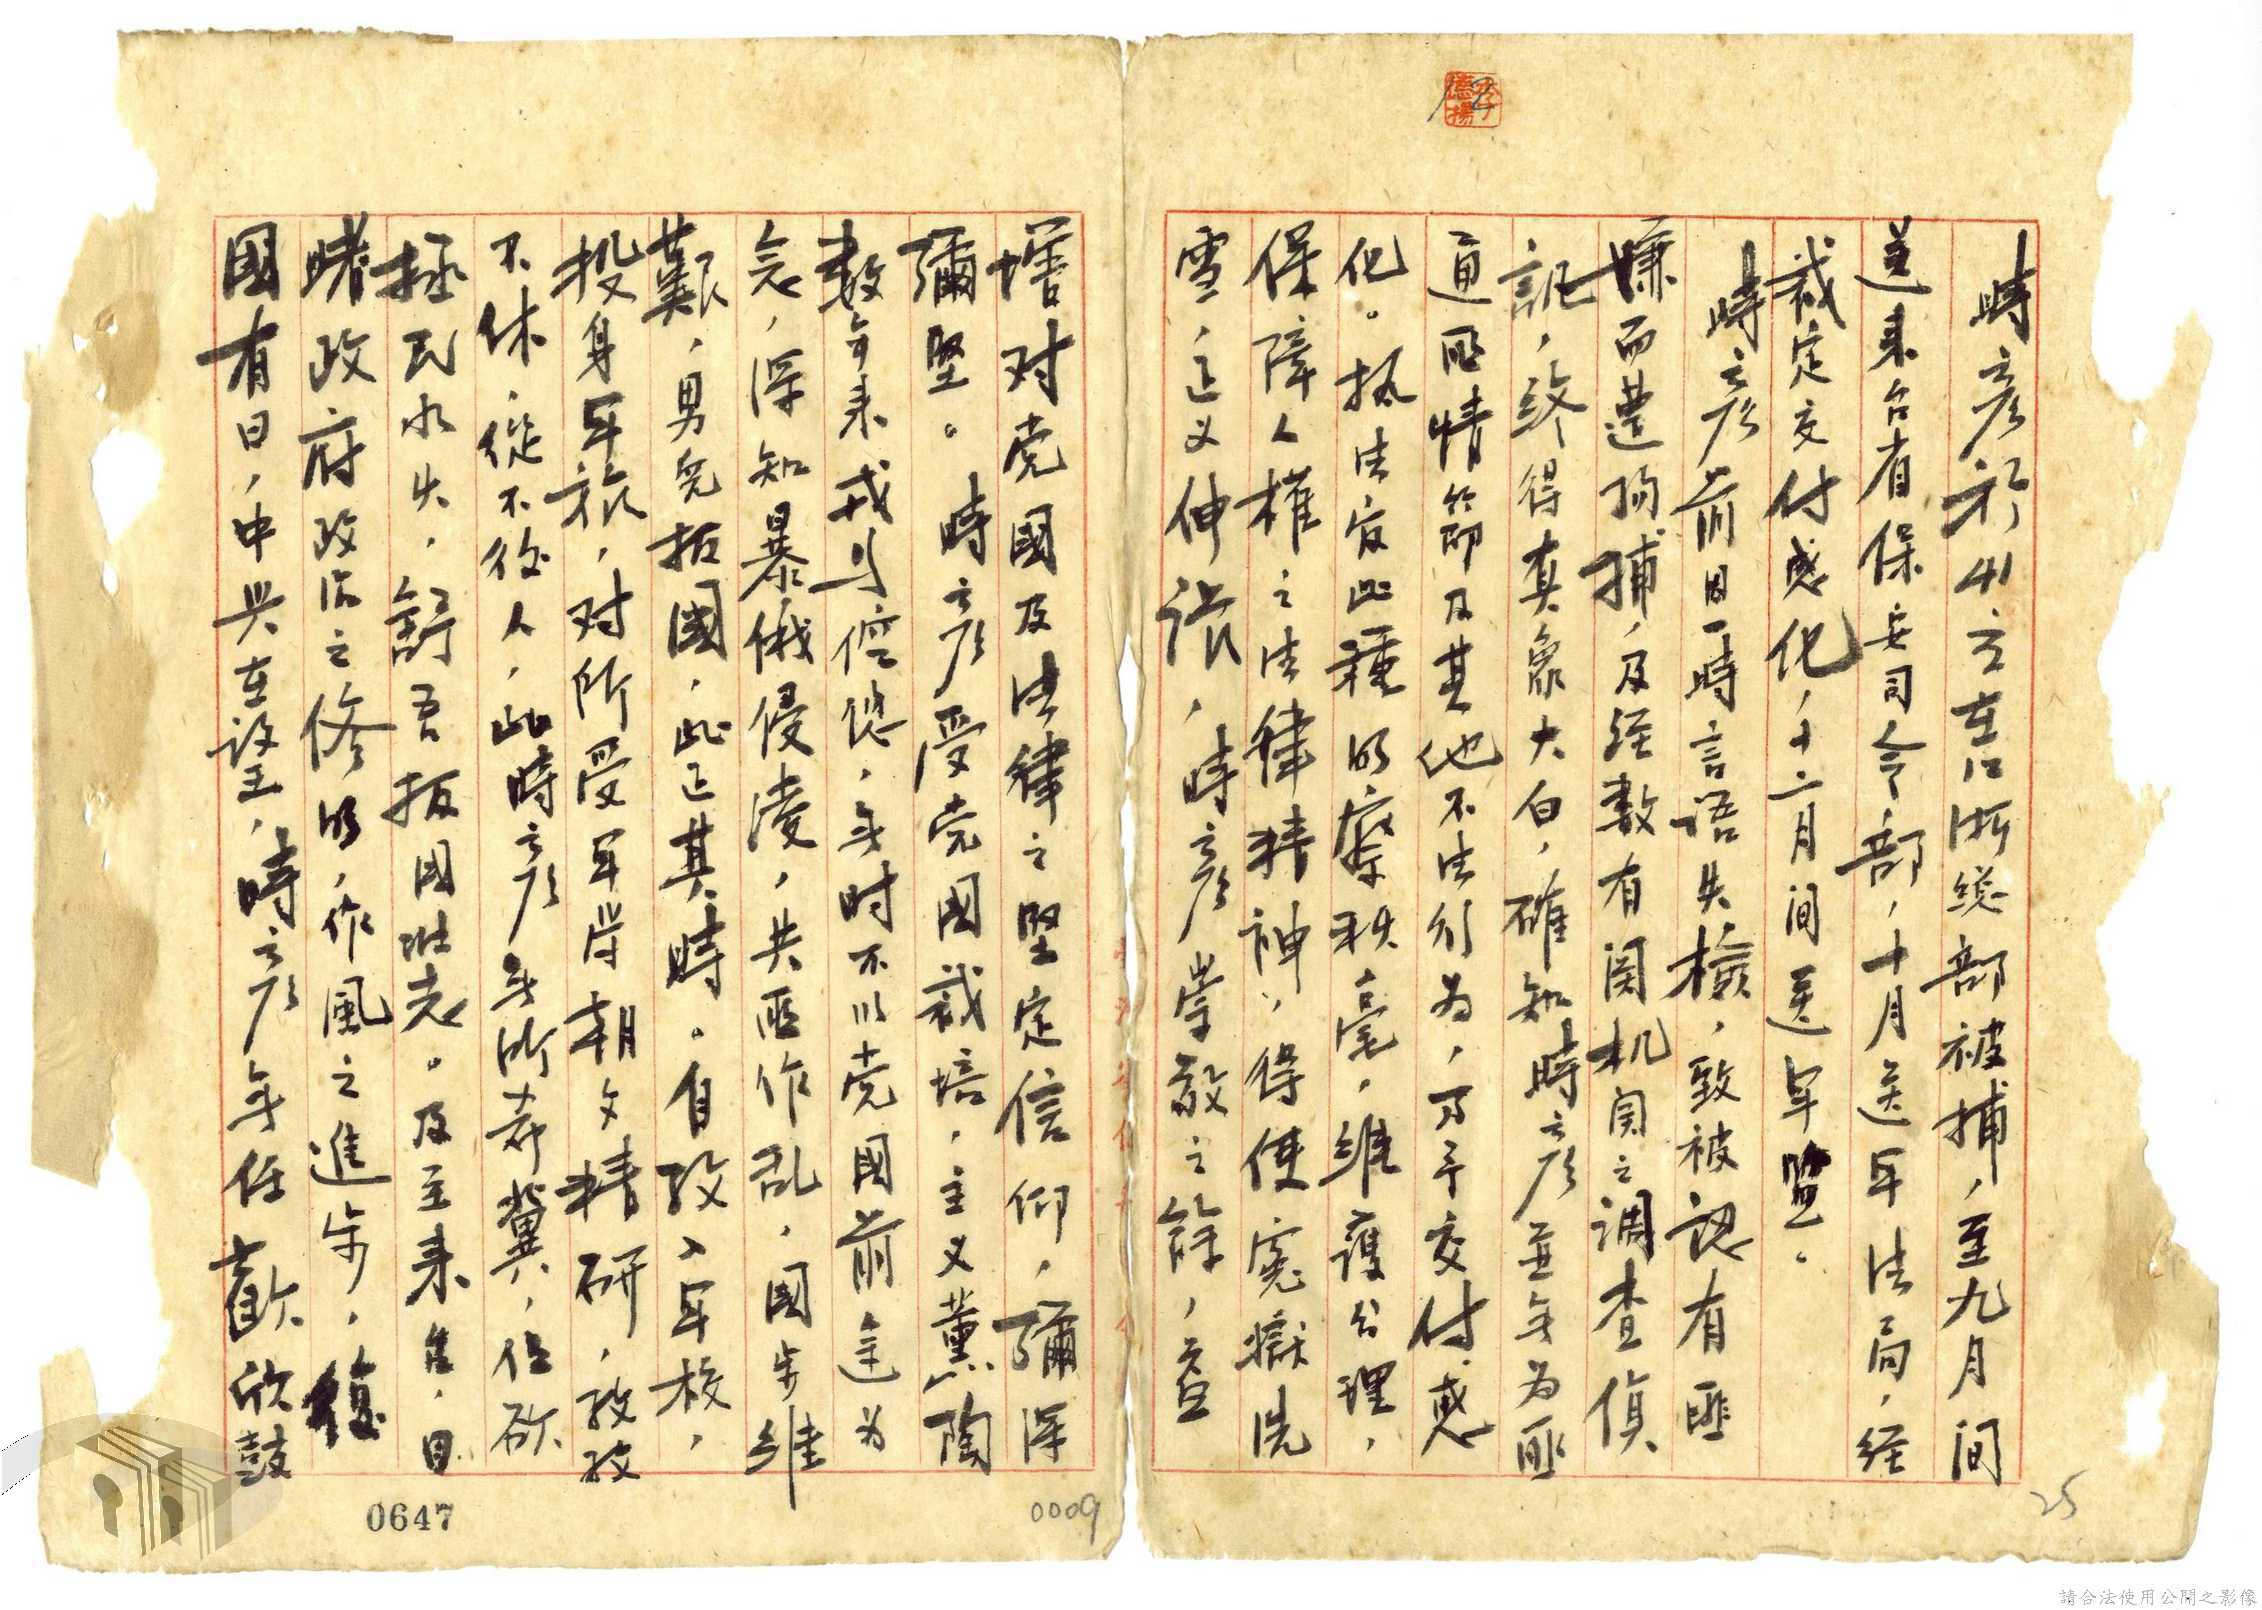 時彥於41.6.在江浙総部被捕，至九月間
送来台省保安司令部，十月送军法局，経
裁定交付感化，十二月間送军監。
時彥前因一時言語失檢，致被認有匪
嫌而遭拘捕，及経数有関机関之調查偵
訊，終得真象大白，確知時彥並無为匪
通匪情節及其他不法行为，乃予交付感
化。执法官此種明察秋毫，維護公理，
保障人權之法律精神，得使寃獄洗
雪，正义伸張，時彥崇敬之餘，益
增对党國及法律之堅定信仰，彌深
彌堅。時彥受党國栽培，主义薰陶
数年来戎马倥偬，無时不以党國前途为
念，深知暴俄侵凌，共匪作乱，國步維
艱，男兒报國，此正其時。自改入军校，
投身军旅，对所受军学朝文精研，孜孜
不休，從不後人，此時彥無所希冀，但欲
拯民水火，酬吾报國壯志。及至来台，目
睹政府政治之修明，作風之進步，復
國有日，中兴在望，時彥無任歡欣鼓
12
李德揚
25
0009
0647
請合法使用公開之影像